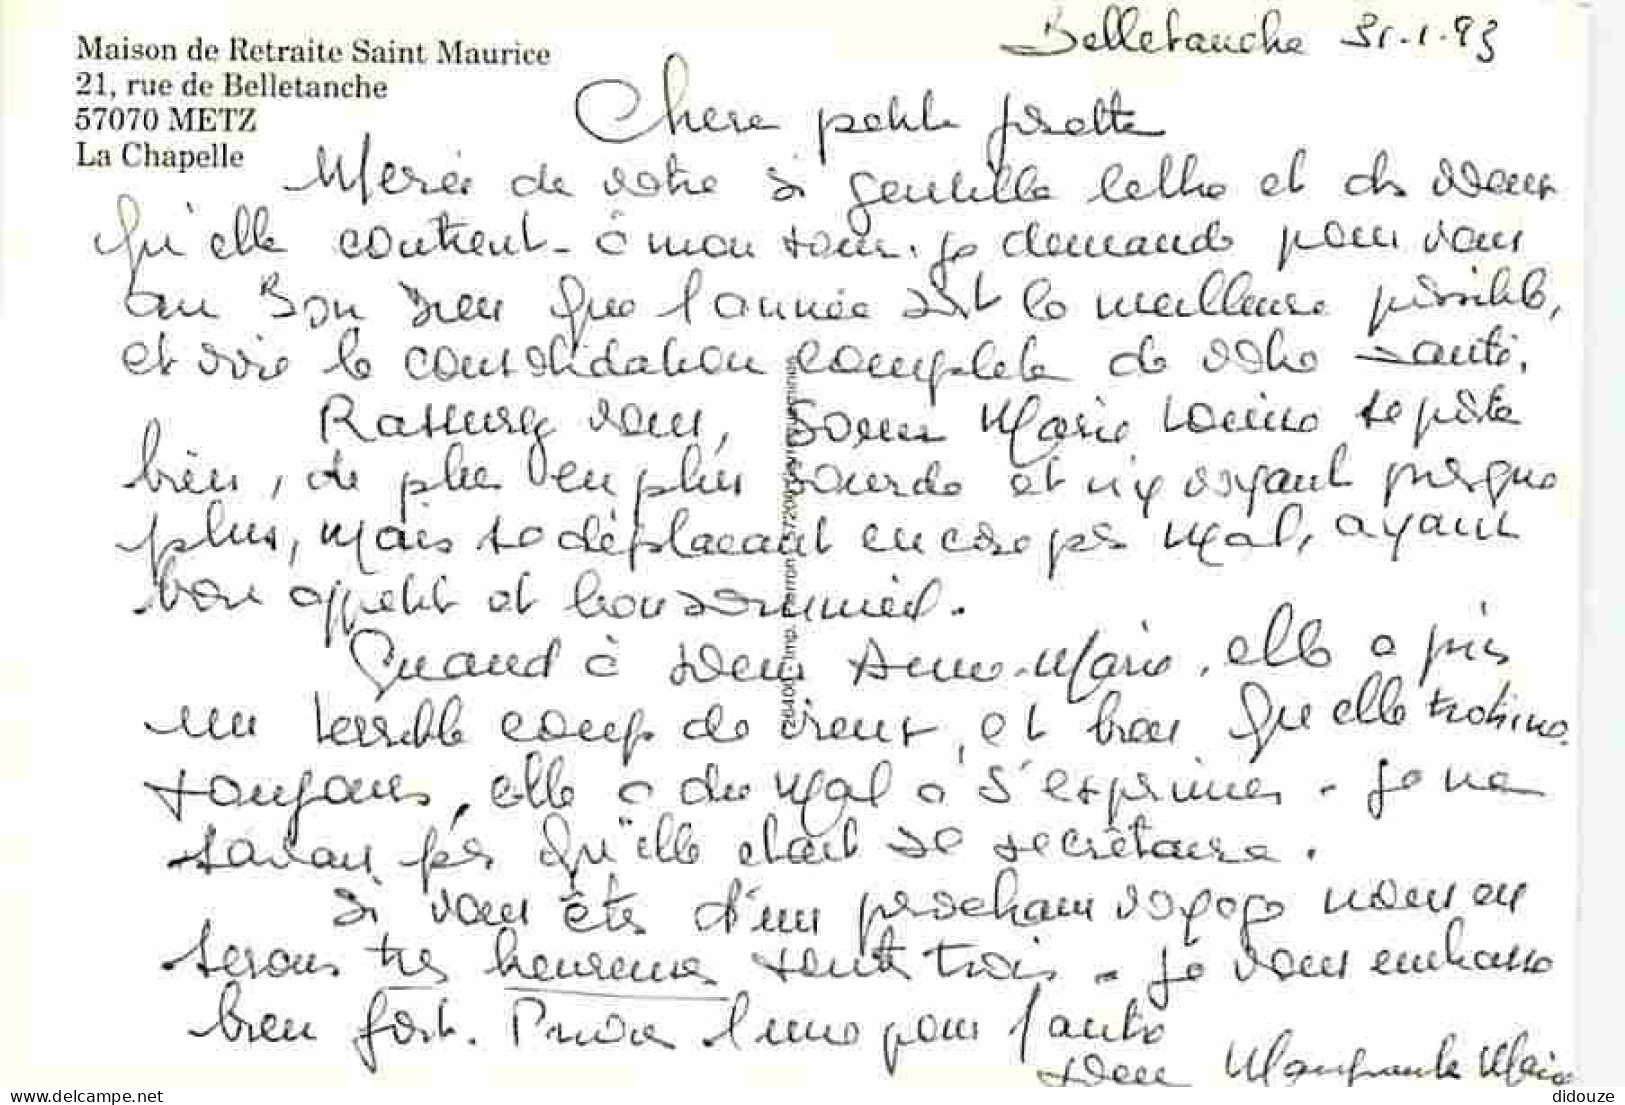 Maison de Retraite Saint Maurice
21, rue de Belletanche
57070 METZ
La Chapelle
Belletanche 31.1.93
Chere petite
Merci de votre si gentille lettre et des vœux
qu'elle contient - à mon tour, je demande pour vous
au Bon Dieu que l'année soit la meilleure possible,
et voie la consolidation complete de votre santé.
Rassurez vous, Soeur Marie se porte
bien, de plus en plus sourde et n'y voyant presque
plus, mais se déplacant encore pas mal, ayant
bon appetit et bon sommeil.
Quand à soeur Anne-Marie, elle a pris
un terrible coup de vieux, et bien qu'elle trottine
toujours, elle a du mal a s'exprimer - je ne
savais pas qu'elle etait secrétaire.
Si vous êtes d'un prochain voyage nous en
serons tres heureuses toutes trois - je vous embrasse
bien fort. Prions l'une pour l'autre
soeur Marguerite Marie
26400 Imp. 57200
didouze